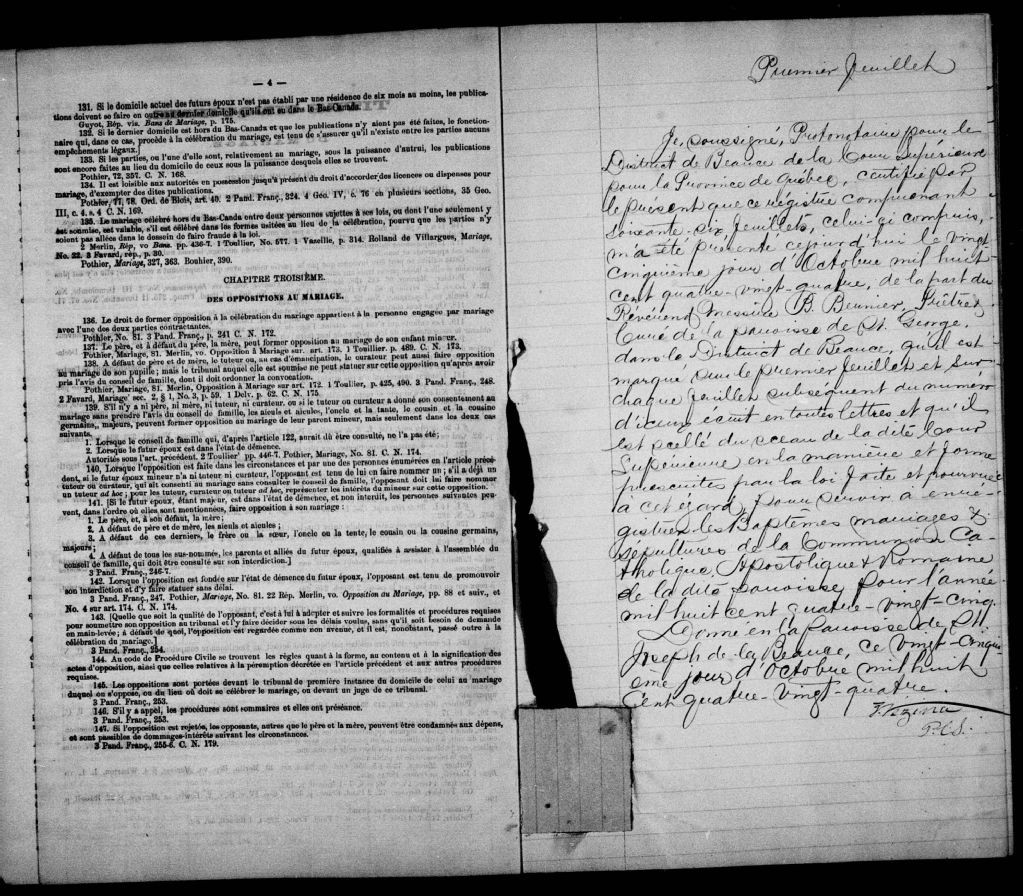 — 4 —
131. Si le domicile actuel des futurs époux n'est pas établi par une résidence de six mois au moins, les publica-
tions doivent se faire en outre au dernier domicile qu'ils ont eu dans le Bas-Canada.
Guyot, Rép. vis. Bans de Mariage, p. 175.
132. Si le dernier domicile est hors du Bas-Canada et que les publications n'y aient pas été faites, le fonction-
naire qui, dans ce cas, procède à la célébration du mariage, est tenu de s'assurer qu'il n'existe entre les parties aucuns
empêchements légaux.
133. Si les parties, ou l'une d'elle sont, relativement au mariage, sous la puissance d'autrui, les publications
sont encore faites au lieu du domicile de ceux sous la puissance desquels elles se trouvent.
Pothier, 72, 357. C. N. 168.
134. Il est loisible aux autorités en possession jusqu'à présent du droit d'accorder des licences ou dispenses pour
mariage, d'exempter des dites publications.
Pothier, 77, 78. Ord. de Blois, art. 40. 2 Pand. Franç., 324. 4 Geo. IV, c. 76 en plusieurs sections, 35 Geo.
III, c. 4. s. 4 C. N. 169.
135. Le mariage célébré hors du Bas-Canda entre deux personnes sujettes à ses lois, ou dont l'une seulement y
est soumise, est valable, s'il est célébré dans les formes usitées au lieu de la célébration, pourvu que les parties n'y
soient pas allées dans le dessein de faire fraude à la loi.
2 Merlin, Rép, vo Bans. pp. 436-7. 1 Toullier, No. 577. 1 Vazeille, p. 314. Rolland de Villargues, Mariage,
No. 22. 3 Favard, rép., p. 30.
Pothier, Mariage, 327, 363. Bouhier, 390.
CHAPITRE TROISIÈME.
DES OPPOSITIONS AU MARIAGE.
136. Le droit de former opposition à la célébration du mariage appartient à la personne engagée par mariage
avec l'une des deux parties contractantes.
Pothier, No. 81. 3 Pand. Franç., p. 241 C. N. 172.
137. Le père, et à défaut du père, la mère, peut former opposition au mariage de son enfant mineur.
Pothier, Mariage, 81. Merlin, vo. Opposition à Mariage sur. art. 173. 1 Toullier. p. 489. C. N. 173.
138. A défaut de père et de mère, le tuteur ou, au cas d'émancipation, le curateur peut aussi faire opposition
au mariage de son pupille; mais le tribunal auquel elle est soumise ne peut statuer sur cette opposition qu'après avoir
pris l'avis du conseil de famille, dont il doit ordonner la convocation.
Pothier, Mariage, 81. Merlin, Opposition à Mariage sur art. 172. 1 Toullier, p. 425, 490. 3 Pand. Franç., 248.
2 Favard, Mariage sec. 2, § 1, No. 3, p. 59. 1 Delv. p. 62. C. N. 175.
139. S'il n'y a ni père, ni mère, ni tuteur, ni curateur, ou si le tuteur ou curateur a donné son consentement au
mariage sans prendre l'avis du conseil de famille, les aieuls et aieules, l'oncle et la tante, le cousin et la cousine
germains, majeurs, peuvent former opposition au mariage de leur parent mineur, mais seulement dans les deux cas
suivants.
1. Lorsque le conseil de famille qui, d'après l'article 122, aurait dû être consulté, ne l'a pas été;
2. Lorsque le futur époux est dans l'état de démence.
Autorités sous l'art. précédent. 2 Toullier pp. 446-7. Pothier, Mariage, No. 81. C. N. 174.
140. Lorsque l'opposition est faite dans ces circonstances et par une des personnes énumérées en l'article précé-
dent, si le futur époux mineur n'a ni tuteur ni curateur, l'opposant est tenu de lui en faire nommer un; s'il a déjà un
tuteur ou curateur, qui ait consenti au mariage sans consulter le conseil de famille, l'opposant doit lui faire nommer
un tuteur ad hoc; pour les tuteur, curateur ou tuteur ad hoc, représenter les intérêts du mineur sur cette opposition.
141. [Si le futur époux, étant majeur, est dans l'état de démence, et non interdit, les personnes suivantes peu-
vent, dans l'ordre où elles sont mentionnées, faire opposition à son mariage:
1. Le père, et, à son défaut, la mère;
2. A défaut de père et de mère, les aieuls et aieules;
3. A défaut de ces derniers, le frère ou la sœur, l'oncle ou la tente, le cousin ou la cousine germains,
majeurs;
4. A défaut de tous les sus-nommés, les parents et alliés du futur époux, qualifiés à assister à l'assemblée du
conseil de famille, qui doit être consulté sur son interdiction.]
3 Pand. Franç., 246-7.
142. Lorsque l'opposition est fondée sur l'état de démence du futur époux, l'opposant est tenu de promouvoir
son interdiction et d'y faire statuer sans délai.
3 Pand. Franç., 247. Pothier, Mariage, No. 81. 22 Rép. Merlin, vo. Opposition au Mariage, pp. 88 et suiv., et
No. 4 sur art. 174. C. N. 174.
143. [Quelle que soit la qualité de l'opposant, c'est à lui à adopter et suivre les formalités et procédures requises
pour soumettre son opposition au tribunal et l'y faire décider sous les délais voulus, sans qu'il soit besoin de demande
en main-levée; à défaut de quoi, l'opposition est regardée comme non avenue, et il est, nonobstant, passé outre à la
célébration du mariage.]
3 Pand. Franç., 254.
144. Au code de Procédure Civile se trouvent les règles quant à la forme, au contenu et à la signification des
actes d'opposition, ainsi que celles relatives à la péremption décrétée en l'article précédent et aux autres procédures
requises.
145. Les oppositions sont portées devant le tribunal de première instance du domicile de celui au mariage
duquel on s'oppose, ou du lieu où doit se célébrer le mariage, ou devant un juge de ce tribunal.
3 Pand. Franç., 253.
146. S'il y a appel, les procédures sont sommaires et elles ont préséance.
3 Pand. Franç., 253.
147. Si l'opposition est rejetée, les opposants, autres que le père et la mère, peuvent être condamnés aux dépens,
et sont passibles de dommages-intérêts suivant les circonstances.
3 Pand. Franç., 255-6. C. N. 179.
Premier feuillet
Je, soussigné, Protonotaire pour le
District de Beauce de la Cour Supérieure
pour la Province de Québec, certifie par
le présent que ce registre comprenant
soixante-six feuillets, celui-çi compris,
m'a été présenté ce jour d'hui le vingt
cinquième jour d'Octobre mil huit-
cent quatre-vingt-quatre, de la part du
Révérend Messire B. Bernier, Prêtre,
Curé de la paroisse de St. George,
dans le District de Beauce, qu'il est
marqué sur le premier feuillet et sur
chaque feuillet subséquent du numéro
d'iceux écrit en toutes lettres et qu'il
est scellé du sceau de la dite Cour
Supérieure en la manière et forme
prescrites par la loi faite et pourvue
à cet égard, pour servir à enre-
gistrer les baptêmes mariages &
sépultures de la Communion Ca-
tholique, Apostolique & Romaine
de la dite paroisse, pour l'année
mil huit cent quatre-vingt-cinq.
Donné en la paroisse de St.
Joseph de la Beauce, ce vingt-cinqui-
ème jour d'Octobre mil huit
Cent quatre-vingt-quatre.
Vézina
P.C.S.